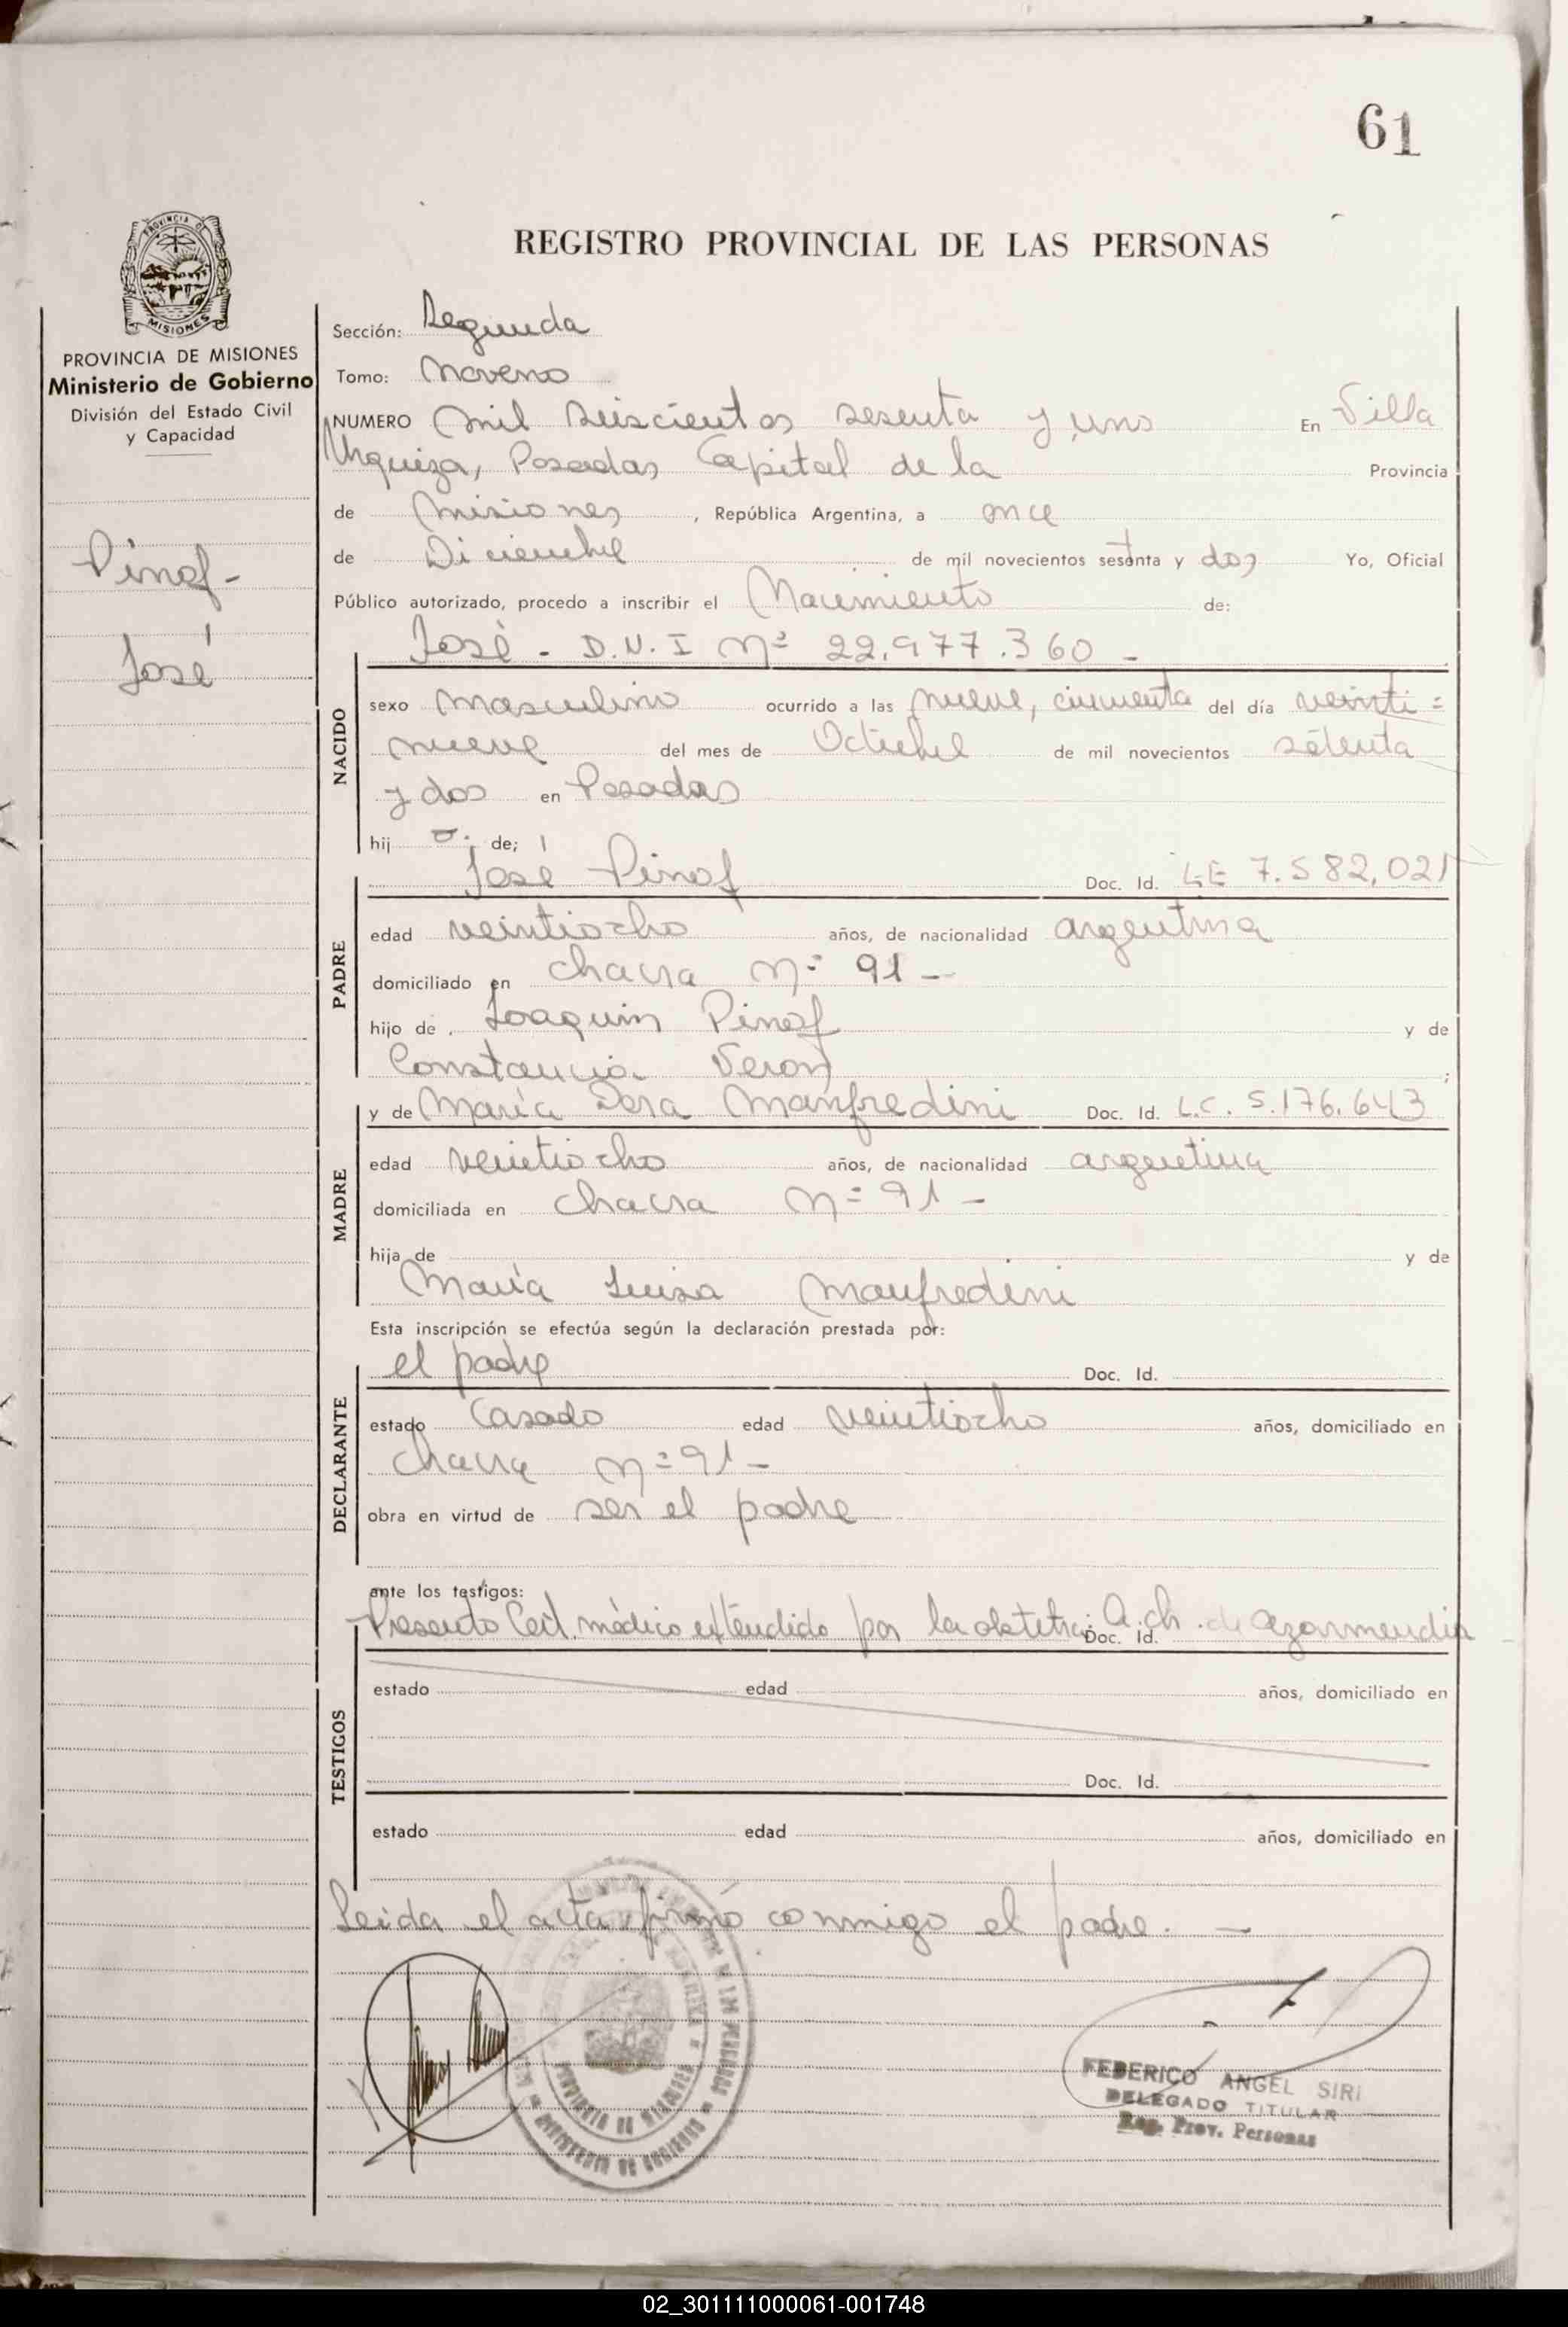 61
REGISTRO PROVINCIAL DE LAS PERSONAS
PROVINCIA DE MISIONES
Ministerio de Gobierno
División del Estado Civil
y Capacidad
Pinof-
José
Sección: Segunda
Tomo: Noveno
NUMERO mil seiscientos sesenta y uno En Villa
Urquiza, Posadas Capital de la Provincia
de Misiones, República Argentina, a once
de Diciembre de mil novecientos setenta y dos Yo, Oficial
Público autorizado, procedo a inscribir el Nacimiento de:
José - D.N.I Nº 22.977.360 -
NACIDO
sexo masculino ocurrido a las nueve, cincuenta del día veinti=
nueve del mes de Octubre de mil novecientos setenta
y dos en Posadas
hij o. de;
José Pinof Doc. Id. L.E 7.582,021
PADRE
edad veintiocho años, de nacionalidad argentina
domiciliado en chacra Nº 91 -
hijo de Joaquin Pinof y de
Constancia Veron ;
y de María Dora Manfredini Doc. Id. L.C. 5.176.643
MADRE
edad veintiocho años, de nacionalidad argentina
domiciliada en chacra Nº 91 -
hija de y de
María Luisa Manfredini
Esta inscripción se efectúa según la declaración prestada por:
el padre Doc. Id.
DECLARANTE
estado Casado edad veintiocho años, domiciliado en
chacra Nº 91 -
obra en virtud de ser el padre
ante los testigos:
Presento Cert. médico extendido por la obstetra: A. ch. de Azarmendia
Doc. Id.
TESTIGOS
estado edad años, domiciliado en
Doc. Id.
estado edad años, domiciliado en
Leida el acta firmó conmigo el padre. -
FEDERICO ANGEL SIRI
DELEGADO TITULAR
Reg. Prov. Personas
02_301111000061-001748